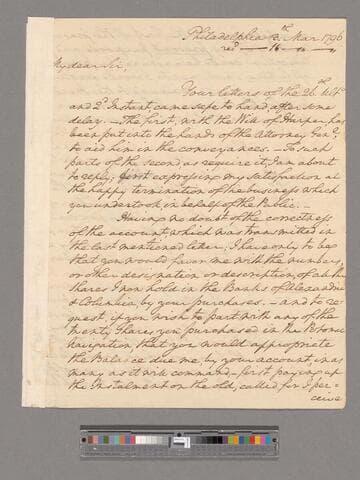 Philadelphia 8th Mar 1796
recd — 16 — —
My dear Sir,
Your letters of the 26th Ulto
and 2d Instant, came safe to hand, after some
delay. — The first, with the Will of Harper has
been put into the hands of the Attorney Genl;
to aid him in the conveyances. — To such
parts of the second as require it, I am about
to reply; first expressing my satisfaction at
the happy termination of the business which
you undertook in behalf of the Public. —
Having no doubt of the correctness
of the account, which was transmitted in
the last mentioned letter, I have only to beg
that you would favor me with the numbers,
or other designation or description, of all the
shares I now hold in the Banks of Alexandria
& Columbia, by your purchases. — and to re-
quest, if you wish to part with any of the
twenty shares you purchased in the Potomac
navigation that you would appropriate
the Balance due me by your account, in as
many as it will command — first paying up
the Instalment on the old, called for I per-
ceive